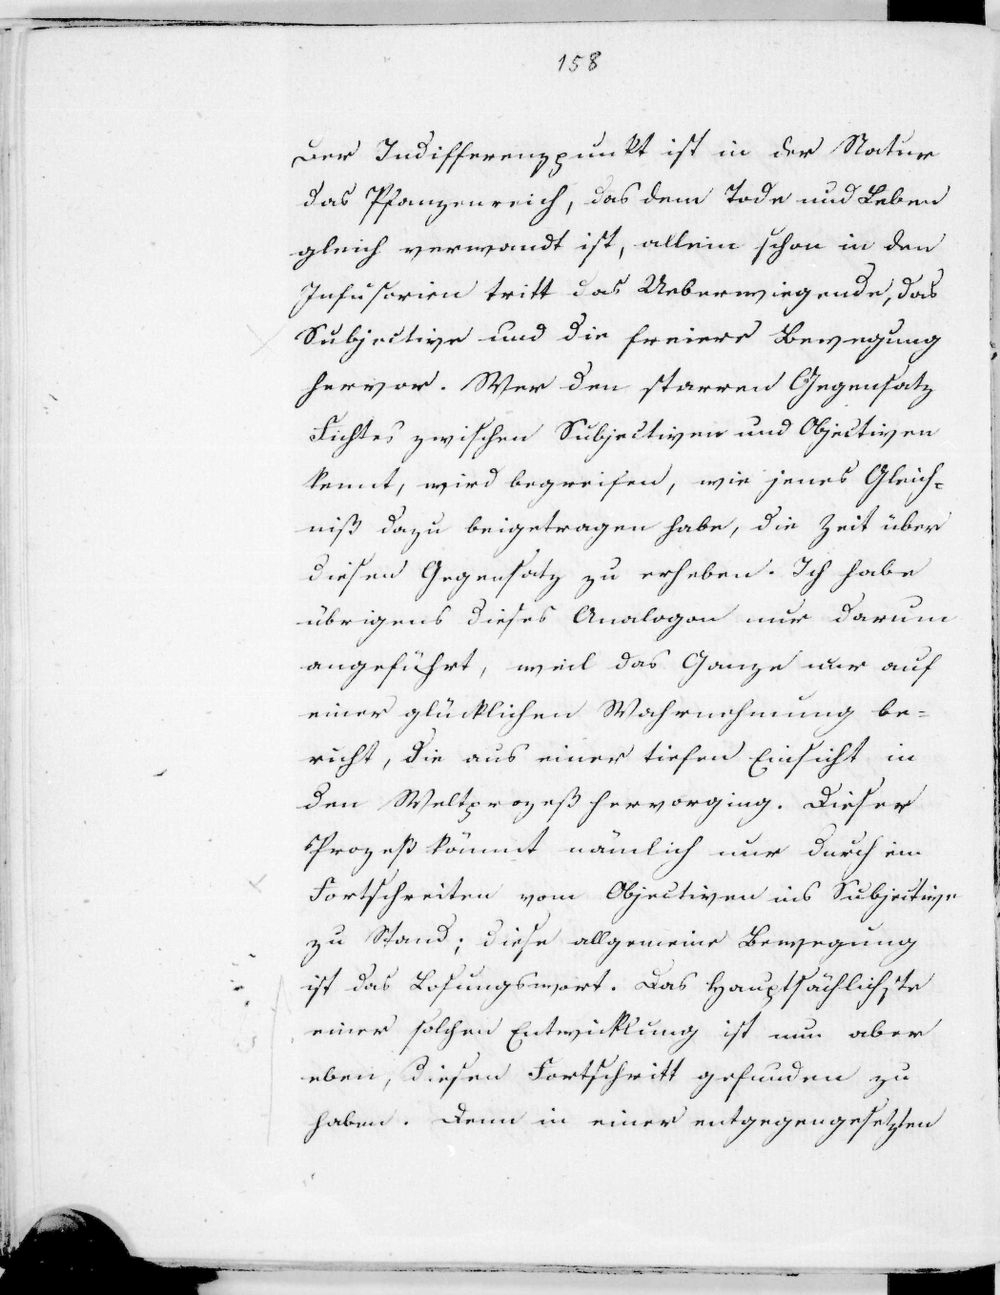 158
Der Indifferenzpunkt ist in der Natur
das Pfanzenreich, das dem Tode und Leben
gleich verwandt ist, allein schon in den
Infusorien tritt das Ueberwiegende, das
Subjective und die freiere Bewegung
hervor. Wer den starren Gegensatz
Fichtes zwischen Subjectiven und Objectiven
kennt, wird begreifen, wie jenes Gleich-
niß dazu beigetragen habe, die Zeit über
diesen Gegensatz zu erheben. Ich habe
übrigens dieses Analogon nur darum
angeführt, weil das Ganze nur auf
einer glücklichen Wahrnehmung be-
richt, die aus einer tiefen Einsicht in
den Weltprozeß hervorging. Dieser
Prozeß kömmt nämlich nur durch ein
Fortschreiten vom Objectiven ins Subjective
zu Stand; diese allgemeine Bewegung
ist das Losungswort. Das Hauptsächlichste
einer solchen Entwicklung ist nun aber
eben, diesen Fortschritt gefunden zu
haben. Denn in einer entgegengesetzten